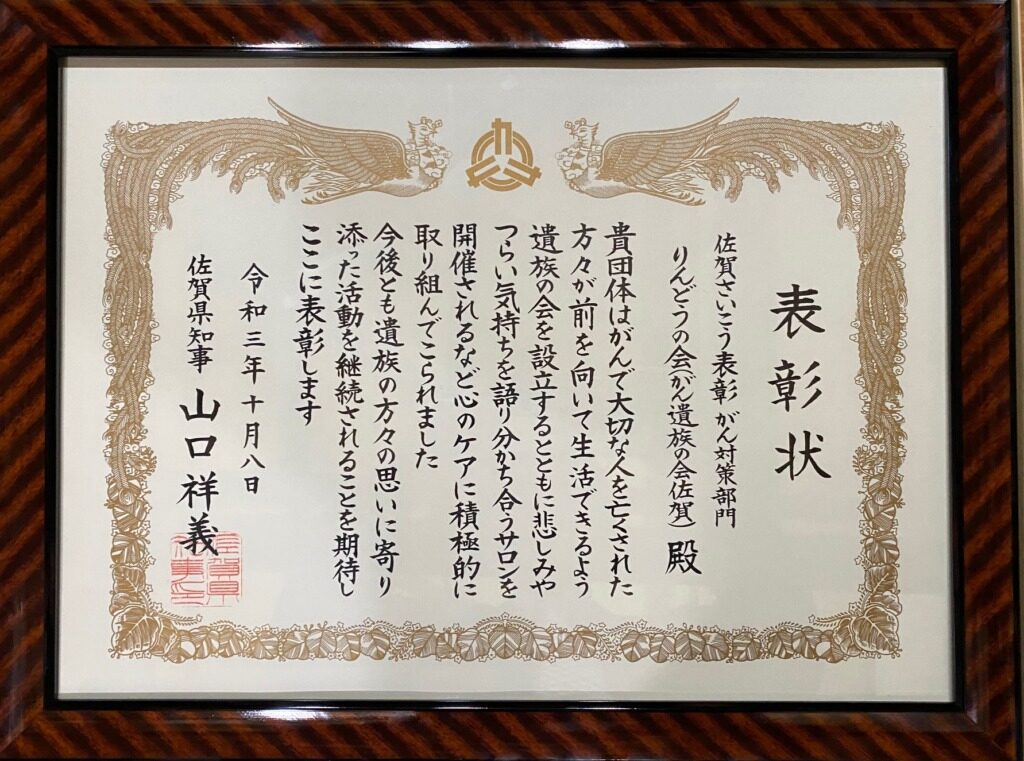 表彰状
佐賀さいこう表彰 がん対策部門
りんどうの会(がん遺族の会佐賀) 殿
貴団体はがんで大切な人を亡くされた
方々が前を向いて生活できるよう
遺族の会を設立するとともに悲しみや
つらい気持ちを語り分かち合うサロンを
開催されるなど心のケアに積極的に
取り組んでこられました
今後とも遺族の方々の思いに寄り
添った活動を継続されることを期待し
ここに表彰します
令和三年十月八日
佐賀県知事 山口祥義